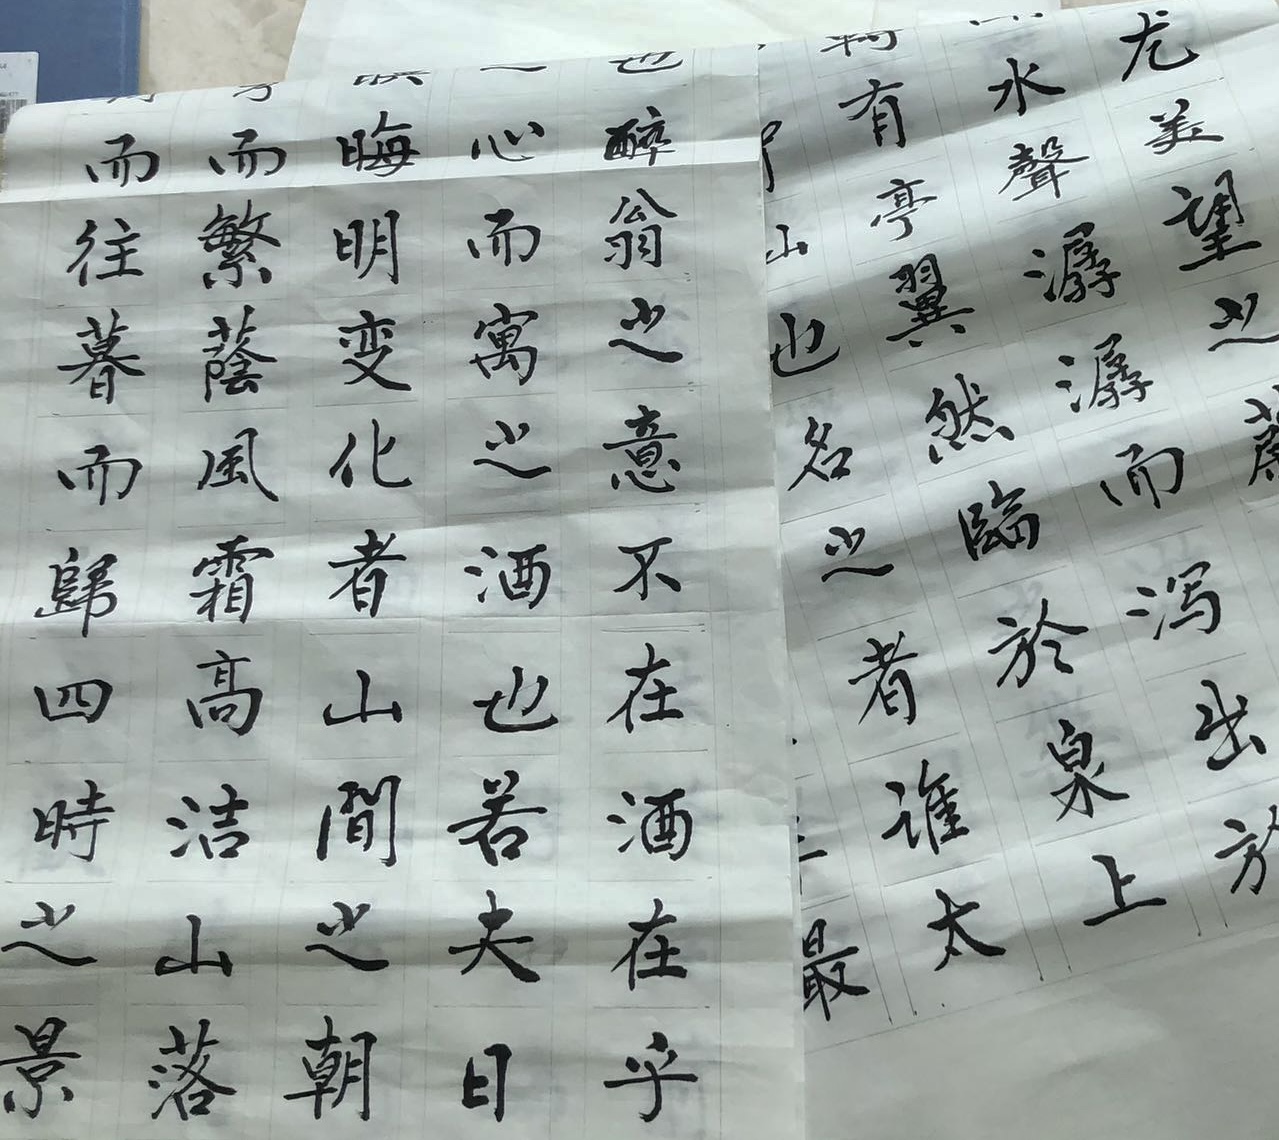 尤美望之蔚
水聲潺潺而泻出於
有亭翼然臨於泉上
山也名之者谁太
最
也醉翁之意不在酒在乎
心而寓之酒也若夫日
晦明变化者山間之朝
而繁蔭風霜高洁山落
而往暮而歸四時之景